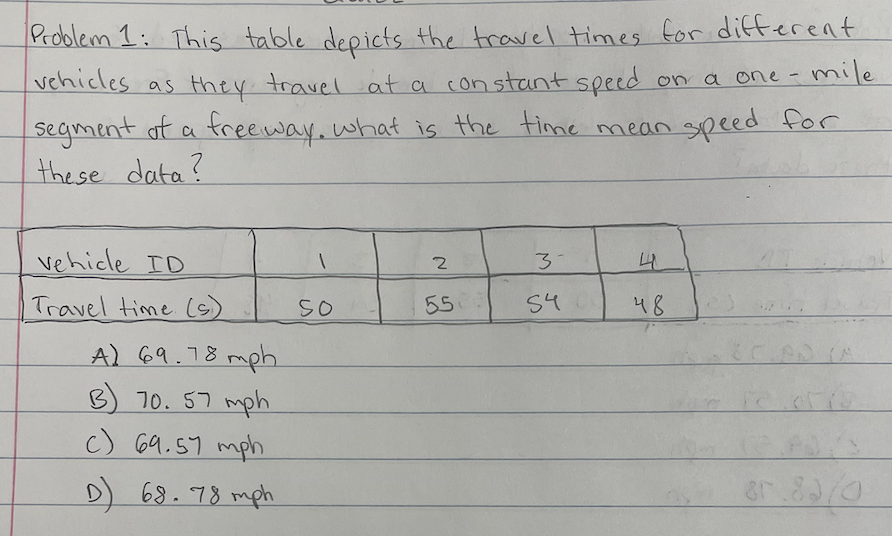 Problem 1: This table depicts the travel times for different
vehicles as they travel at a constant speed on a one-mile
segment of a freeway. what is the time mean speed for
these data?
Vehicle ID 1 2 3 4
Travel time (s) 50 55 54 48
A) 69.78 mph
B) 70.57 mph
C) 69.57 mph
D) 68.78 mph